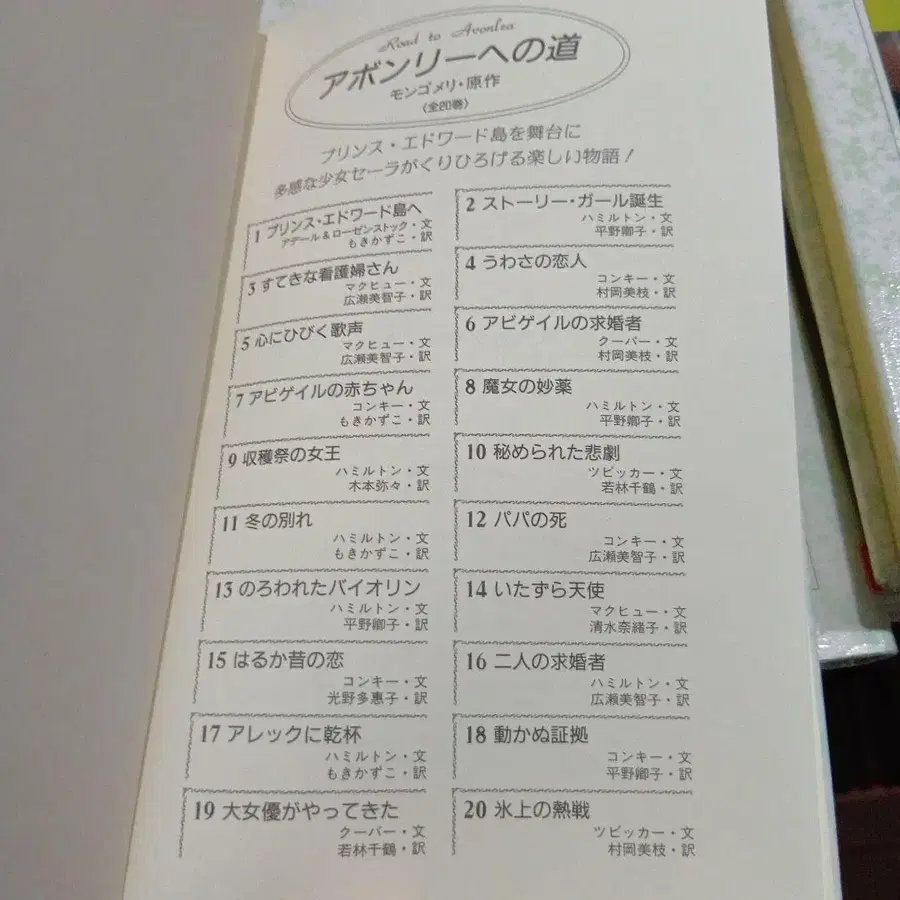 Road to Avonlea
アボンリーへの道
モンゴメリ・原作
〈全20巻〉
プリンス・エドワード島を舞台に
多感な少女セーラがくりひろげる楽しい物語!
1 プリンス・エドワード島へ
アデール&ローゼンストック・文
もきかずこ・訳
2 ストーリー・ガール誕生
ハミルトン・文
平野卿子・訳
3 すてきな看護婦さん
マクヒュー・文
広瀬美智子・訳
4 うわさの恋人
コンキー・文
村岡美枝・訳
5 心にひびく歌声
マクヒュー・文
広瀬美智子・訳
6 アビゲイルの求婚者
クーパー・文
村岡美枝・訳
7 アビゲイルの赤ちゃん
コンキー・文
もきかずこ・訳
8 魔女の妙薬
ハミルトン・文
平野卿子・訳
9 収穫祭の女王
ハミルトン・文
木本弥々・訳
10 秘められた悲劇
ツビッカー・文
若林千鶴・訳
11 冬の別れ
ハミルトン・文
もきかずこ・訳
12 パパの死
コンキー・文
広瀬美智子・訳
13 のろわれたバイオリン
ハミルトン・文
平野卿子・訳
14 いたずら天使
マクヒュー・文
清水奈緒子・訳
15 はるか昔の恋
コンキー・文
光野多惠子・訳
16 二人の求婚者
ハミルトン・文
広瀬美智子・訳
17 アレックに乾杯
ハミルトン・文
もきかずこ・訳
18 動かぬ証拠
コンキー・文
平野卿子・訳
19 大女優がやってきた
クーパー・文
若林千鶴・訳
20 氷上の熱戦
ツビッカー・文
村岡美枝・訳